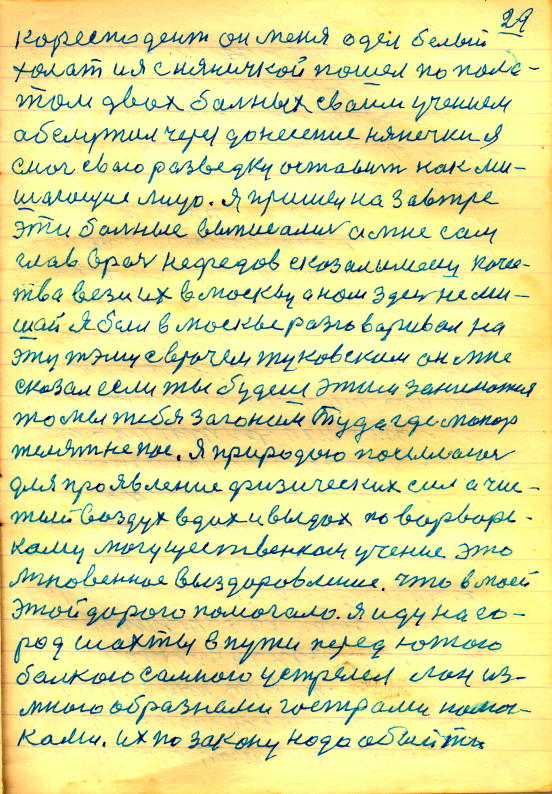 29
коресподент он меня одел белый
халат и я с няничкой пошел по пала-
том двох балных сваим учением
абслужил через донесение нянечки я
смог сваю разведку оставит как ми-
шающие лицо. Я пришел на завтре
эти балные выписалис а мне сам
глав врач нефедов сказал
тва вези их в москву а ном здес не ми-
шай Я был в москве разговаривал на
эту тэму сврачем жуковским он мне
сказал если ты будеш этим заниматся
то мы тебя загоним Туда где макар
телят не пас. Я природою
для проявление физических сил а чис-
тый воздух вдох и выдох по
кому могущественном учение это
мгновенное выздоровление. Что в моей
этой дорого помогало. Я иду на го-
род шахты в пути перед
балкою самого
много образнами гострами
ками. их по закону нодо абыйти